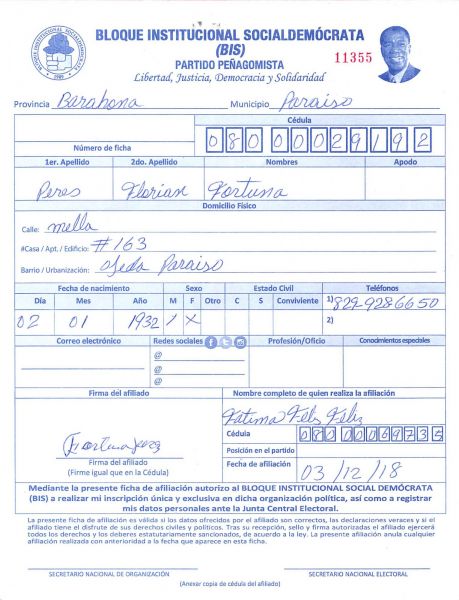 BLOQUE INSTITUCIONAL SOCIALDEMÓCRATA
(BIS)
PARTIDO PEÑAGOMISTA
11355
Libertad, Justicia, Democracia y Solidaridad
Provincia Barahona Municipio Paraiso
Cédula
Número de ficha 08000029192
1er. Apellido 2do. Apellido Nombres Apodo
Peres Florian Fortuna
Domicilio Físico
Calle: mella
#Casa / Apt. / Edificio: #163
Barrio / Urbanización: Ojeda Paraiso
Fecha de nacimiento Sexo Estado Civil Teléfonos
Día Mes Año M F Otro C S Conviviente 1) 829-9286650
02 01 1932 / X 2)
Correo electrónico Redes sociales Profesión/Oficio Conocimientos especiales
@
@
@
Firma del afiliado Nombre completo de quien realiza la afiliación
Fatima Féliz Féliz
Cédula 08000069735
Posición en el partido
Firma del afiliado
(Firme igual que en la Cédula)
Fecha de afiliación 03/12/18
Mediante la presente ficha de afiliación autorizo al BLOQUE INSTITUCIONAL SOCIAL DEMÓCRATA
(BIS) a realizar mi inscripción única y exclusiva en dicha organización política, así como a registrar
mis datos personales ante la Junta Central Electoral.
La presente ficha de afiliación es válida si los datos ofrecidos por el afiliado son correctos, las declaraciones veraces y si el
afiliado tiene el disfrute de sus derechos civiles y políticos. Tras su recepción, sello y firma autorizada el afiliado ejercerá
todos los derechos y los deberes estatutariamente sancionados, de acuerdo a la ley. La presente afiliación anula cualquier
afiliación realizada con anterioridad a la fecha que aparece en esta ficha.
SECRETARIO NACIONAL DE ORGANIZACIÓN SECRETARIO NACIONAL ELECTORAL
(Anexar copia de cédula del afiliado)